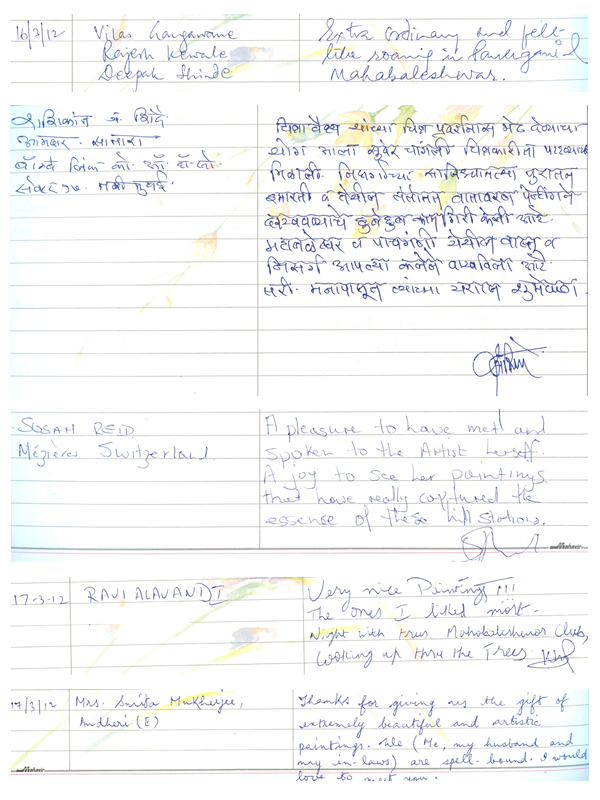 16/3/12
Vilas Gangawane
Rajesh Kewale
Deepak Shinde
Extra ordinary and felt
like roaming in Panchgani &
Mahabaleshwar.
शशिकांत व. शिंदे
आमदार. सातारा
बॉम्बे को. ऑ.
नवी मुंबई
यांच्या चित्र प्रदर्शनास भेट देण्याचा
योग आला सुंदर चांगली चित्रकारीता पहायला
मिळाली. निसर्गाच्या सानिध्यातल्या पुरातन
इमारती व तेथील वातावरण पेन्टींगने
हुबेहुब कामगिरी केली आहे.
महाबळेश्वर व पाचगणी येथील वास्तू व
निसर्ग आपल्या कलेने दाखविला आहे
तरी. मनापासून त्यांच्या शुभेच्छा.
SUSAN REID
Mézières Switzerland
A pleasure to have met and
spoken to the Artist herself.
A joy to see her paintings
that have really captured the
essence of these hill stations.
17-3-12
RAVI ALAVANDI
Very nice Paintings !!!
The ones I liked most -
Night with trees, Mahabaleshwar Club,
Looking up thru the Trees
17/3/12
Mrs. Smita Mukherjee,
Andheri (E)
Thanks for giving us the gift of
extremely beautiful and artistic
paintings. We (Me, my husband and
my in-laws) are spell-bound. I would
love to meet you.